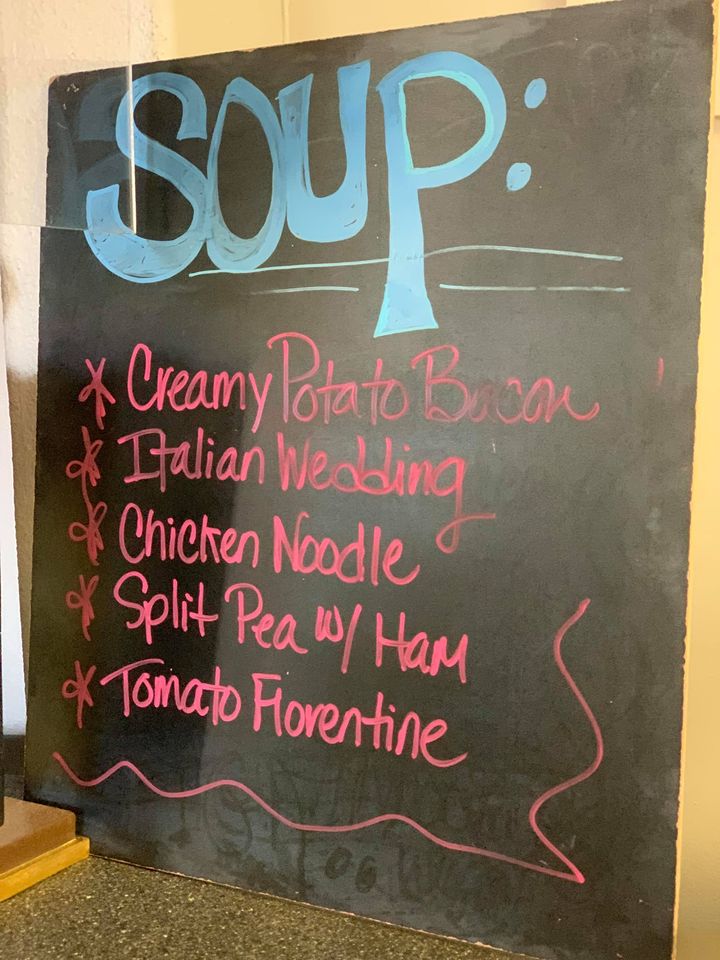 SOUP:
* Creamy Potato Bacon
* Italian Wedding
* Chicken Noodle
* Split Pea w/ Ham
* Tomato Florentine